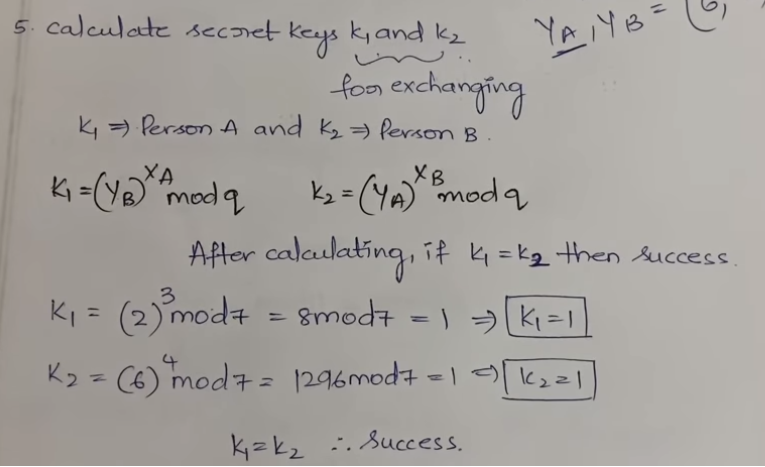 5. calculate secret keys k₁ and k₂ Y_A, Y_B = (6,
for exchanging
k₁ ⇒ Person A and k₂ ⇒ Person B.
k₁ = (Y_B)^X_A mod q k₂ = (Y_A)^X_B mod q
After calculating, if k₁ = k₂ then success.
k₁ = (2)³ mod 7 = 8 mod 7 = 1 ⇒ k₁ = 1
k₂ = (6)⁴ mod 7 = 1296 mod 7 = 1 ⇒ k₂ = 1
k₁ = k₂ ∴ Success.